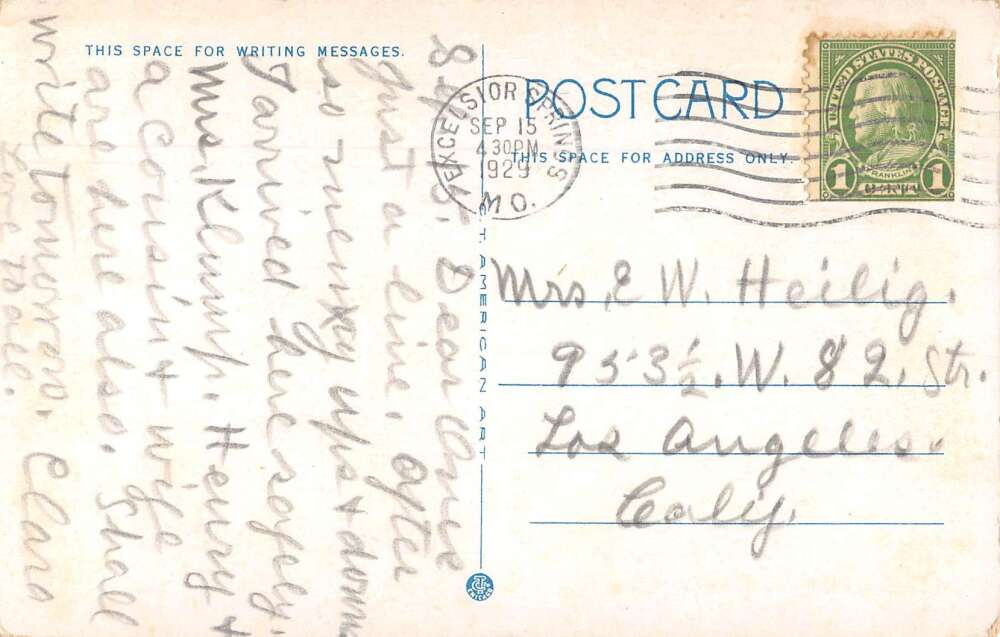 THIS SPACE FOR WRITING MESSAGES.
POST CARD
THIS SPACE FOR ADDRESS ONLY.
EXCELSIOR SPRINGS
SEP 15
4 30 PM
1929
MO.
UNITED STATES POSTAGE
FRANKLIN
1 1
Sep. 15. Dear
Just a line, after
so many ups & downs
I arrived here safely.
Mrs. Klump, Henry &
a Cousin & wife
are here also. Shall
write tomorrow. Clara
Love to all.
Mrs. E W. Heilig.
953 ½. W. 82, Str.
Los Angeles.
Calif.
AMERICAN ART
CHICAGO